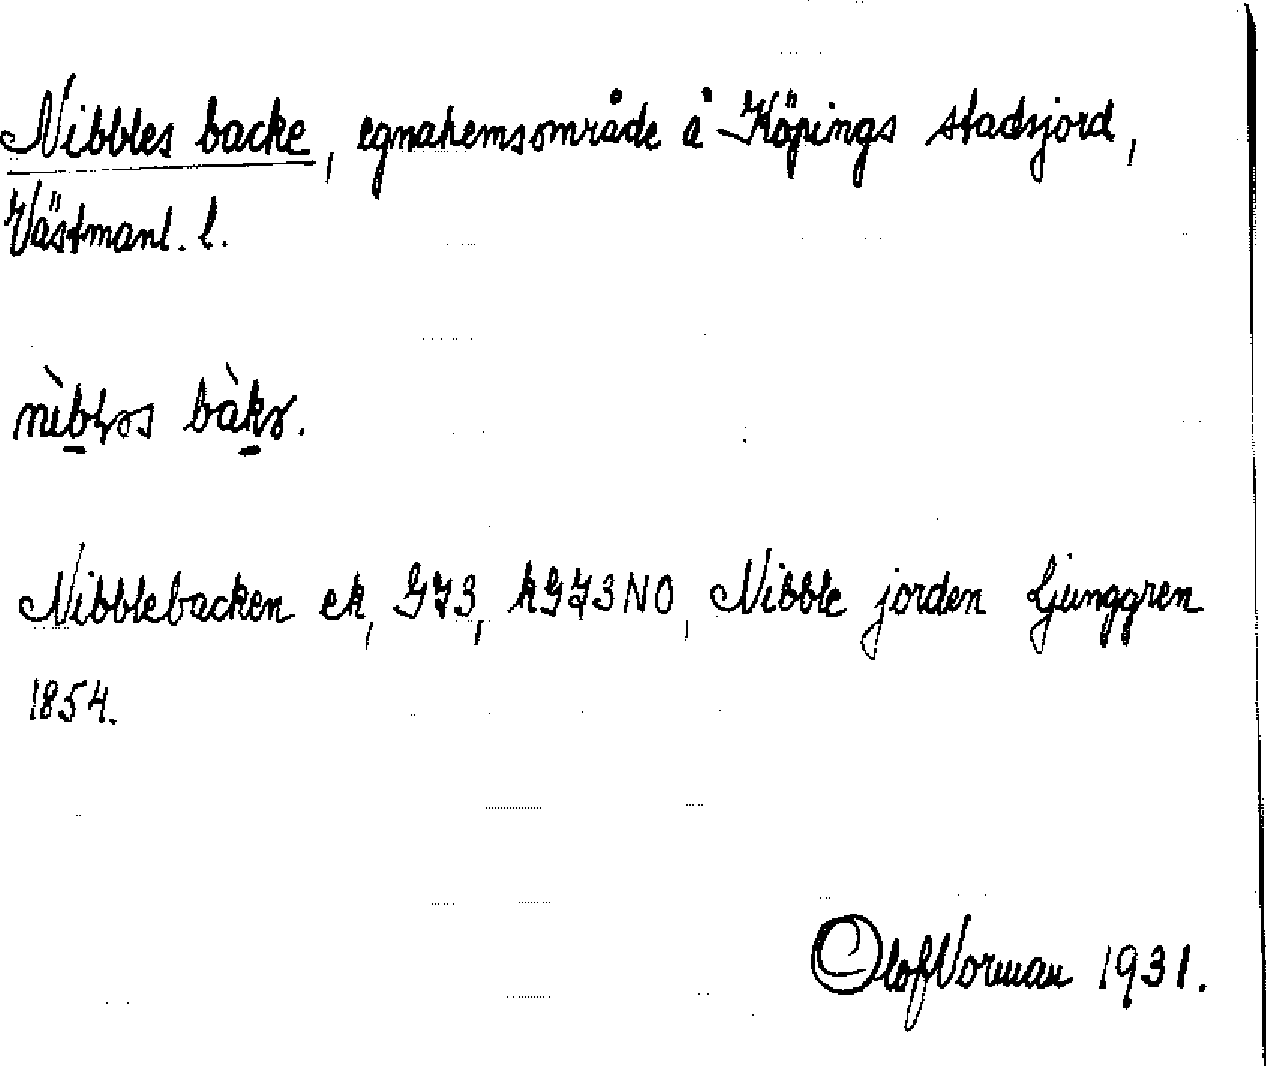 Nibbles backe, egnahemsområde å Köpings stadsjord,
Västmanl. l.
Nibblebacken ek, GJ3, kGJ3NO, Nibble jorden Ljunggren
1854.
Olof Norman 1931.